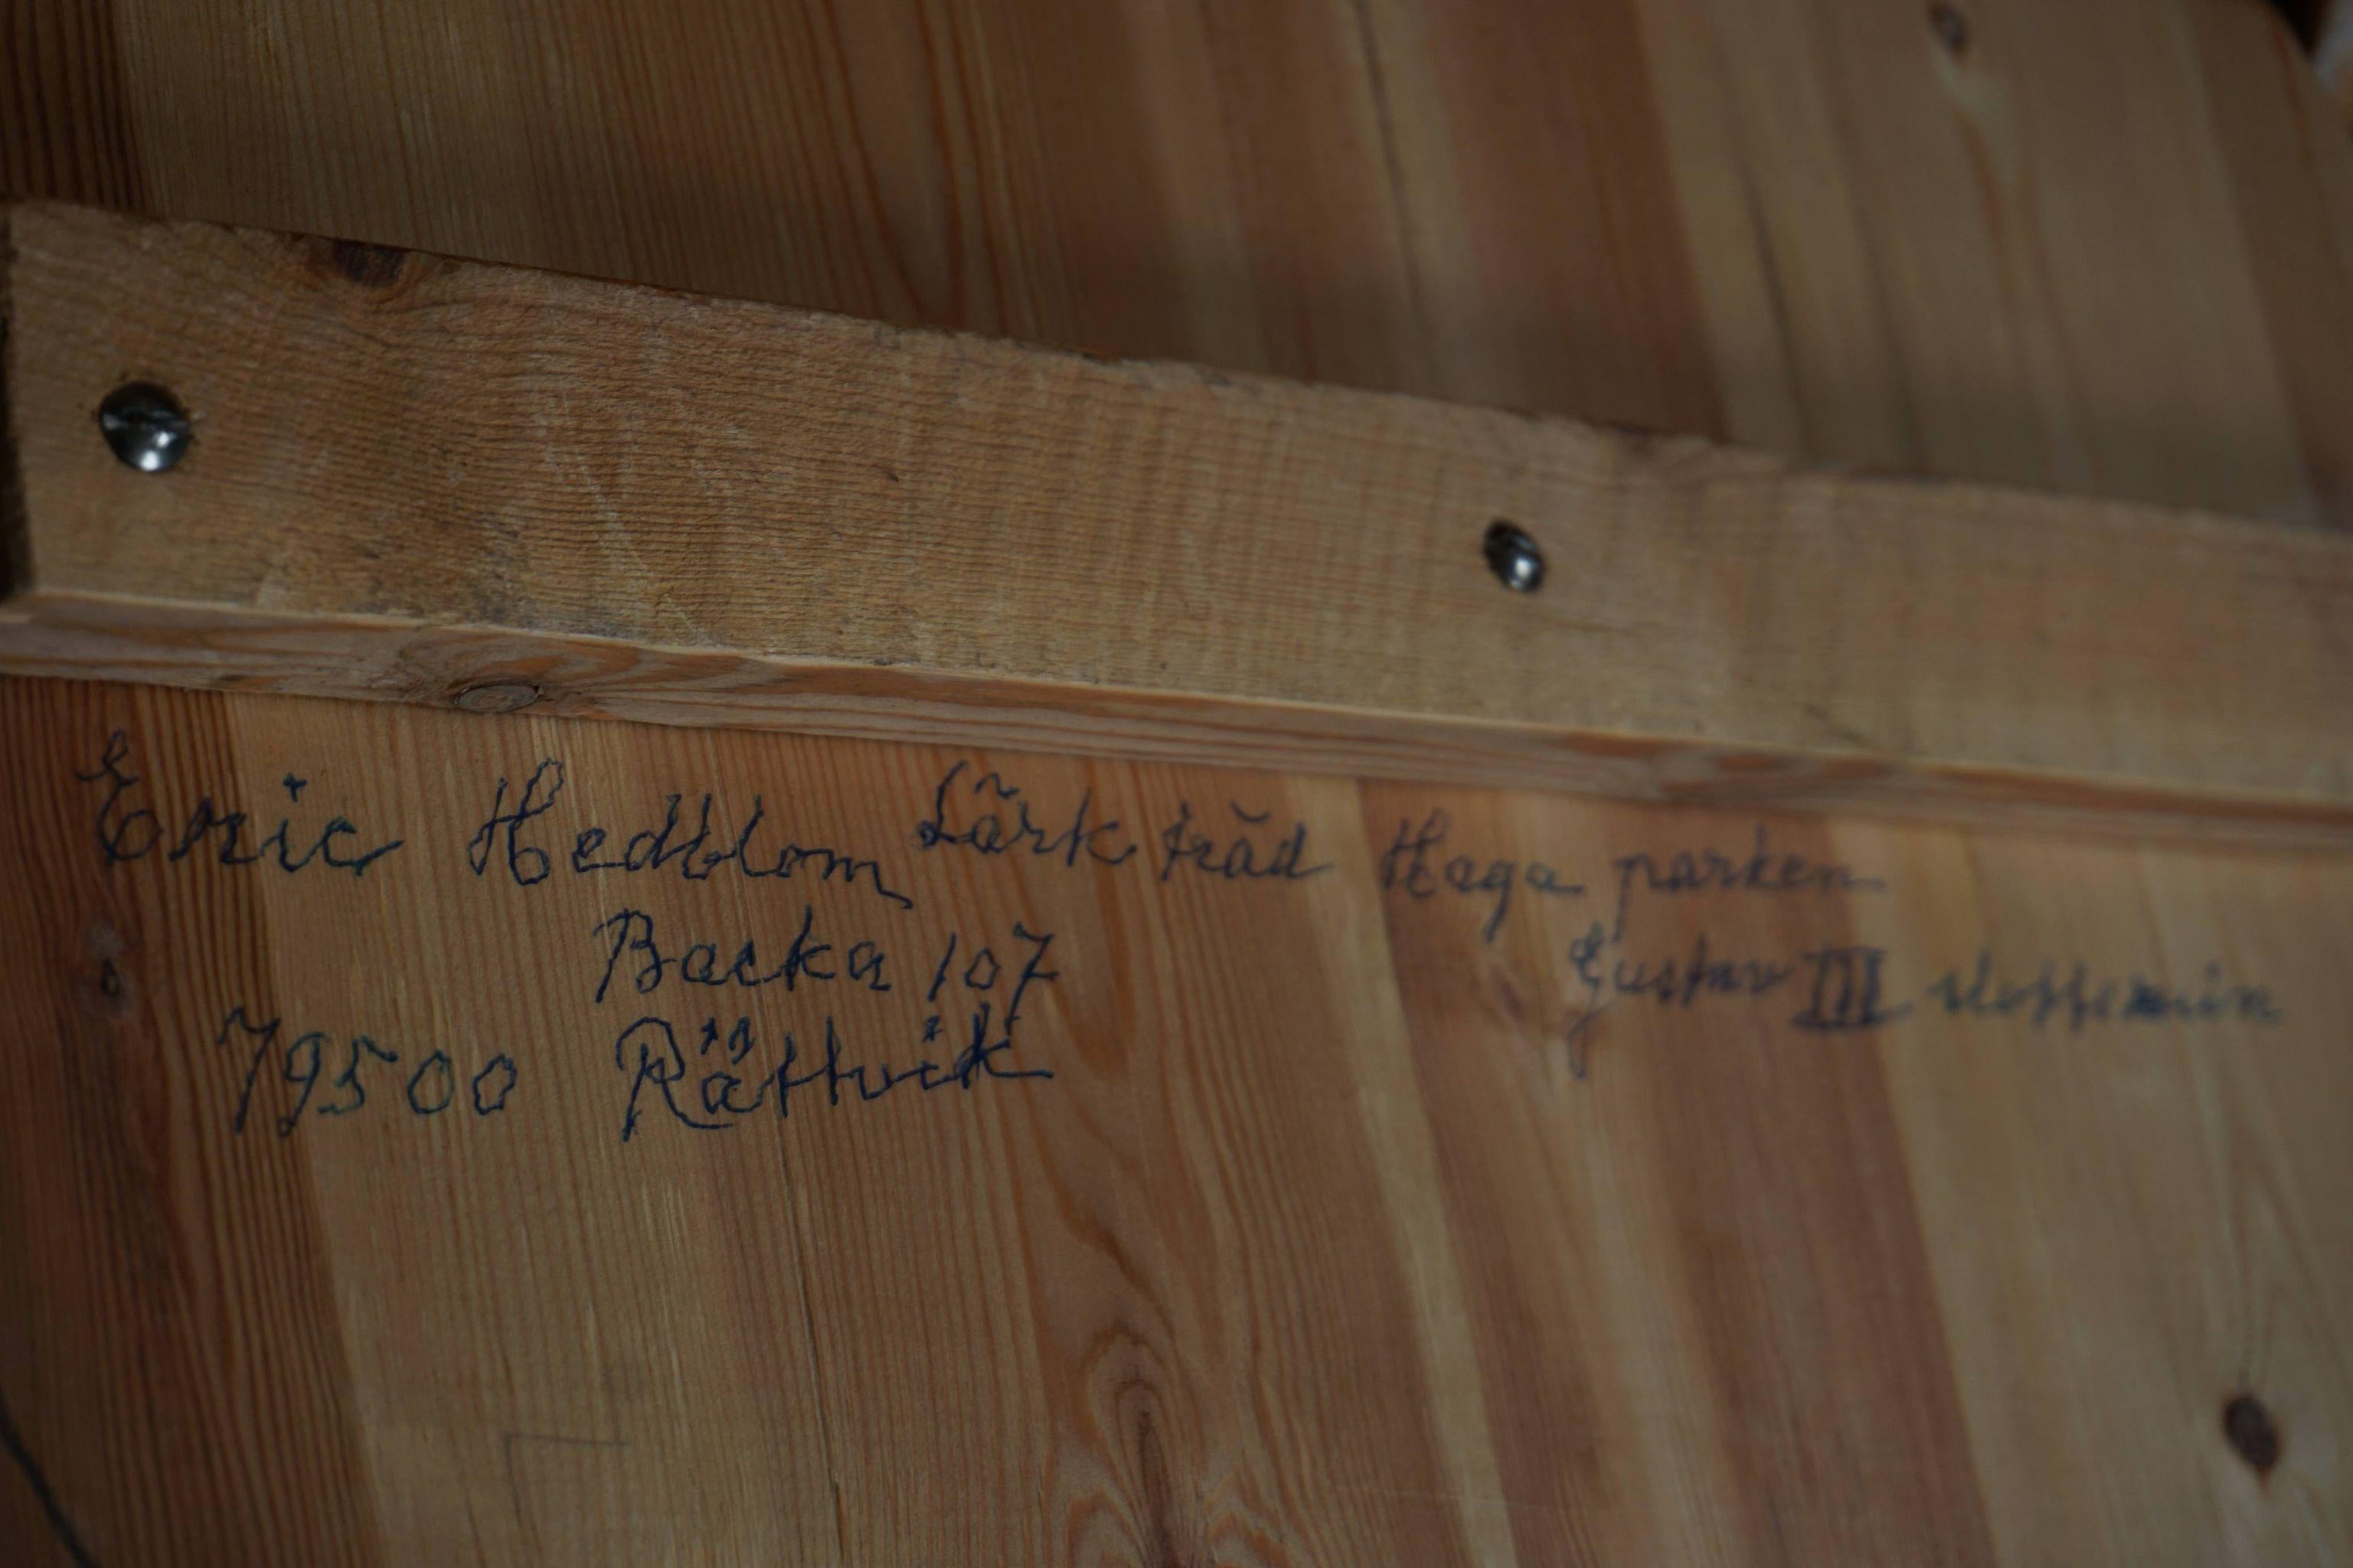 Eric Hedblom Lärk träd Haga parken
Backa 107
Gustav III
79500 Rättvik